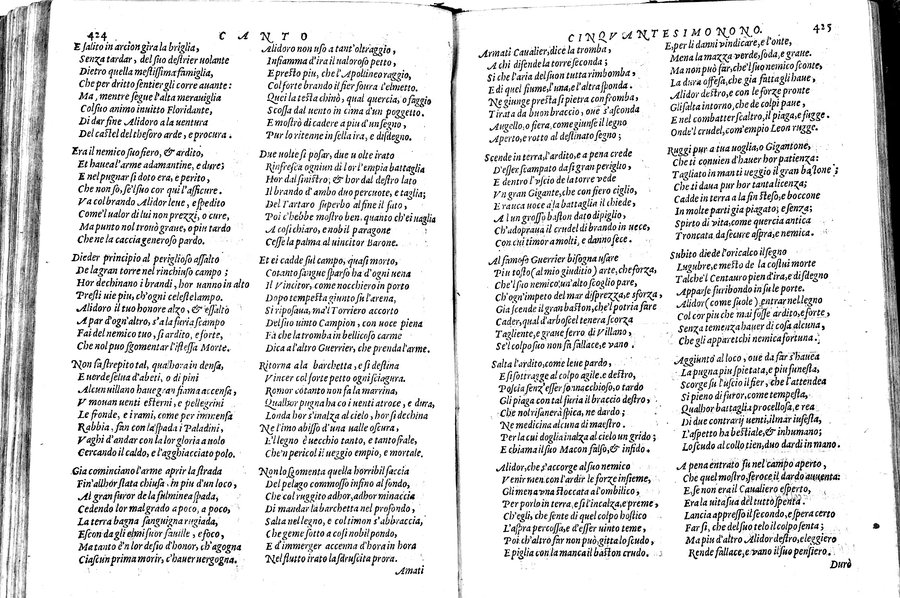 424 CANTO
E salito in arcion gira la briglia,
Senza tardar, del suo destrier uolante
Dietro quella mestissima famiglia,
Che per dritto sentier gli corre auante:
Ma, mentre segue l'alta merauiglia
Col suo animo inuitto Floridante,
Di dar fine Alidoro a la uentura
Del castel del thesoro arde, e procura.
Era il nemico suo fiero, & ardito,
Et hauea l'arme adamantine, e dure;
E nel pugnar sì doto era, e perito,
Che non so, se'l suo cor qui l'assicure.
Va col brando Alidor leue, e spedito
Come'l ualor di lui non prezzi, o cure,
Ma punto nol trouò graue, o piu tardo
Che ne la caccia generoso pardo.
Dieder principio al periglioso assalto
De la gran torre nel rinchiuso campo;
Hor dechinano i brandi, hor uanno in alto
Presti uie piu, ch'ogni celeste lampo.
Alidoro il tuo honore alzo, & essalto
A par d'ogn'altro, s'a la furia scampo
Fai del nemico tuo, si ardito, e forte,
Che nol puo sgomentar l'istessa Morte.
Non fa strepito tal, qualhora in densa,
E uerde selua d'abeti, o di pini
Alcun uillano haue gran fiamma accensa,
V mouan uenti esterni, e pellegrini
Le fronde, e i rami, come per immensa
Rabbia, fan con la spada i Paladini,
Vaghi d'andar con la lor gloria a uolo
Cercando il caldo, e l'agghiacciato polo.
Gia cominciano l'arme aprir la strada
Fin'allhor stata chiusa, in piu d'un loco,
Al gran furor de la fulminea spada,
Cedendo lor malgrado a poco, a poco,
La terra bagna sanguigna rugiada,
Escon da gli elmi suor fauille, e foco,
Ma tanto è'n lor desio d'honor, ch'agogna
Ciascun prima morir, c'hauer uergogna.
Alidoro non uso a tant'oltraggio,
Infiamma d'ira il ualoroso petto,
E presto piu, che l'Apollineo raggio,
Col forte brando il fier foura l'elmetto.
Quei la testa chinò, qual quercia, o faggio
Scossa dal uento in cima d'un poggetto.
E mostrò di cadere a piu d'un segno,
Pur lo ritenne in sella ira, e disdegno.
Due uolte si posar, due u olte irato
Rinfresca ogniun di lor l'empia battaglia
Hor dal sinistro, & hor dal destro lato
Il brando d'ambo duo percuote, e taglia;
Del Tartaro superbo al fine il fato,
Poi c'hebbe mostro ben, quanto ch'ei uaglia
A così chiaro, e nobil paragone
Cesse la palma al uincitor Barone.
Et ei cadde sul campo, quasi morto,
Cotanto sangue sparso ha d'ogni uena
Il Vincitor, come nocchiero in porto
Dopo tempesta giunto su l'arena,
Si riposaua, ma'l Torriero accorto
Del suo uinto Campion, con uoce piena
Fà che la tromba in bellicoso carme
Dica al'altro Guerrier, che prenda l'arme.
Ritorna a la barchetta, e si destina
Vincer col forte petto ogni sciagura.
Romor cotanto non fa la marina,
Qualhor pugna ha co i uenti atroce, e dura,
L'onda hor s'inalza al cielo, hor si dechina
Ne l'imo abisso d'una ualle oscura,
E'l legno è uecchio tanto, e tanto frale,
Che'n pericol il ueggo empio, e mortale.
Non lo sgomenta quella horribil faccia
Del pelago commosso insino al fondo,
Che col ruggito ad hor, ad hor minaccia
Di mandar la barchetta nel profondo,
Salta nel legno, e col timon s'abbraccia,
Che geme sotto a così nobil pondo,
E d'immerger accenna d'hora in hora
Nel flutto irato la sdruscita prora.
Amati
CINQVANTESIMONONO. 425
Armati Caualier, dice la tromba,
A chi difende la torre seconda;
Si che l'aria del suon tutta rimbomba,
E di quel fiume, l'una, e l'altra sponda.
Ne giunge presta sì pietra con fromba,
Tirata da buon braccio, oue s'asconda
Augello, o fiera, come giunse il legno
Aperto, e rotto al destinato segno;
Scende in terra, l'ardito, e a pena crede
D'esser scampato da sì gran periglio,
E dentro l'uscio de la torre uede
Vn gran Gigante, che con fiero ciglio,
E rauca uoce a la battaglia il chiede,
A l un grosso baston dato dipiglio,
Ch'adopraua il crudel di brando in uece,
Con cui timor a molti, e danno fece.
Al famoso Guerrier bisogna usare
Piu tosto (al mio giuditio) arte, che forza,
Che'l suo nemico ua'alto scoglio pare,
Ch'ogn'impeto del mar disprezza, e sforza,
Gia scende il gran baston, che'l potria fare
Cader, qual d'arboscel tenera scorza
Tagliente, e graue ferro di Villano,
Se'l colpo suo non fia fallace, e uano.
Salta l'ardito, come leue pardo,
E si sottragge al colpo agile, e destro,
Poscia senz'esser so nacchioso, o tardo
Gli piaga con tal furia il braccio destro,
Che nol risanerà spica, ne dardo;
Ne medicina alcuna di maestro.
Per la cui doglia inalza al cielo un grido;
E chiama il suo Macon falso, & infido.
Alidor, che s'accorge al suo nemico
Venir men con l'ardir le forze insieme,
Gli mena una stoccata al'ombilico,
Per porlo in terra, e si l'incalza, e preme,
Ch'egli, che sente di quel colpo hostico
L'aspra percossa, e d'esser uinto teme,
Poi ch'altro far non può, gitta lo scudo,
E piglia con la manca il baston crudo.
E, per li danni vindicare, e l'onte,
Mena la mazza verde, soda, e graue.
Ma non può far, che'l suo nemico sconte,
La dura offesa, che gia fatta gli haue,
Alidor destro, e con le forze pronte
Gli salta intorno, che de colpi paue,
E nel combatter scaltro, il piaga, e fugge.
Onde'l crudel, com'empio Leon rugge.
Ruggi pur a tua uoglia, o Gigantone,
Che ti conuien d'hauer hor patienza:
Tagliato in man ti ueggio il gran bastone;
Che ti daua pur hor tanta licenza;
Cadde in terra a la fin steso, e boccone
In molte parti gia piagato; e senza;
Spirto di vita, come quercia antica
Troncata da secure aspra, e nemica.
Subito diede l'oricalco il segno
Lugubre, e mesto de la costui morte
Talche'l Centauro pien d'ira, e di sdegno
Apparse furibondo in su le porte.
Alidor (come suole) entrar nel legno
Col cor piu che mai fosse ardito, e forte,
Senza temenza hauer di cosa alcuna,
Che gli apparecchi nemica fortuna.
Aggiunto al loco, oue da far s'hauea
La pugna piu spietata, e piu funesta,
Scorge su l'uscio il fier, che l'attendea
Si pieno di furor, come tempesta,
Qualhor battaglia procellosa, e rea
Di due contrarij uenti, il mar infesta,
L'aspetto ha bestiale, & inhumano;
Lo scudo al collo tien, duo dardi in mano.
A pena entrato fu nel campo aperto,
Che quel mostro, feroce il dardo auuenta:
E, se non era il Caualiero esperto,
Era la uita sua del tutto spenta.
Lancia appresso il secondo, e spera certo
Far sì, che del suo telo il colpo senta;
Ma piu d'altro Alidor destro, e leggiero
Rende fallace, e vano il suo pensiero.
Durò